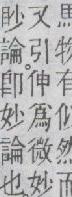 物有似然而
又引伸爲微妙
眇論。卽妙論也